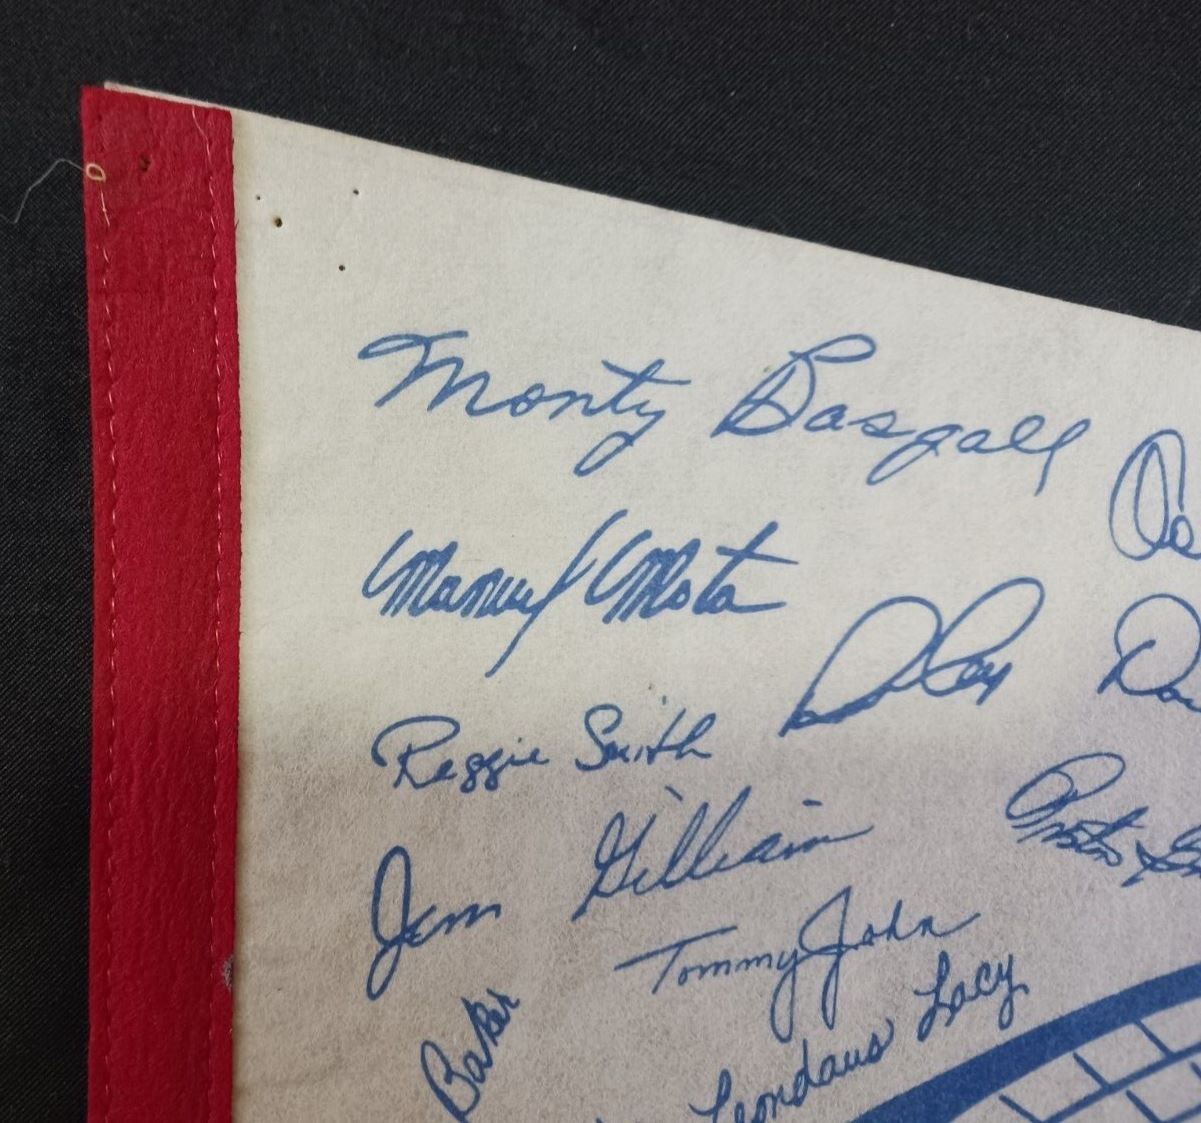 Monty Basgall
Manuel Mota
Reggie Smith
Jim Gilliam
Tommy John
Baker
Leondaus Lacy